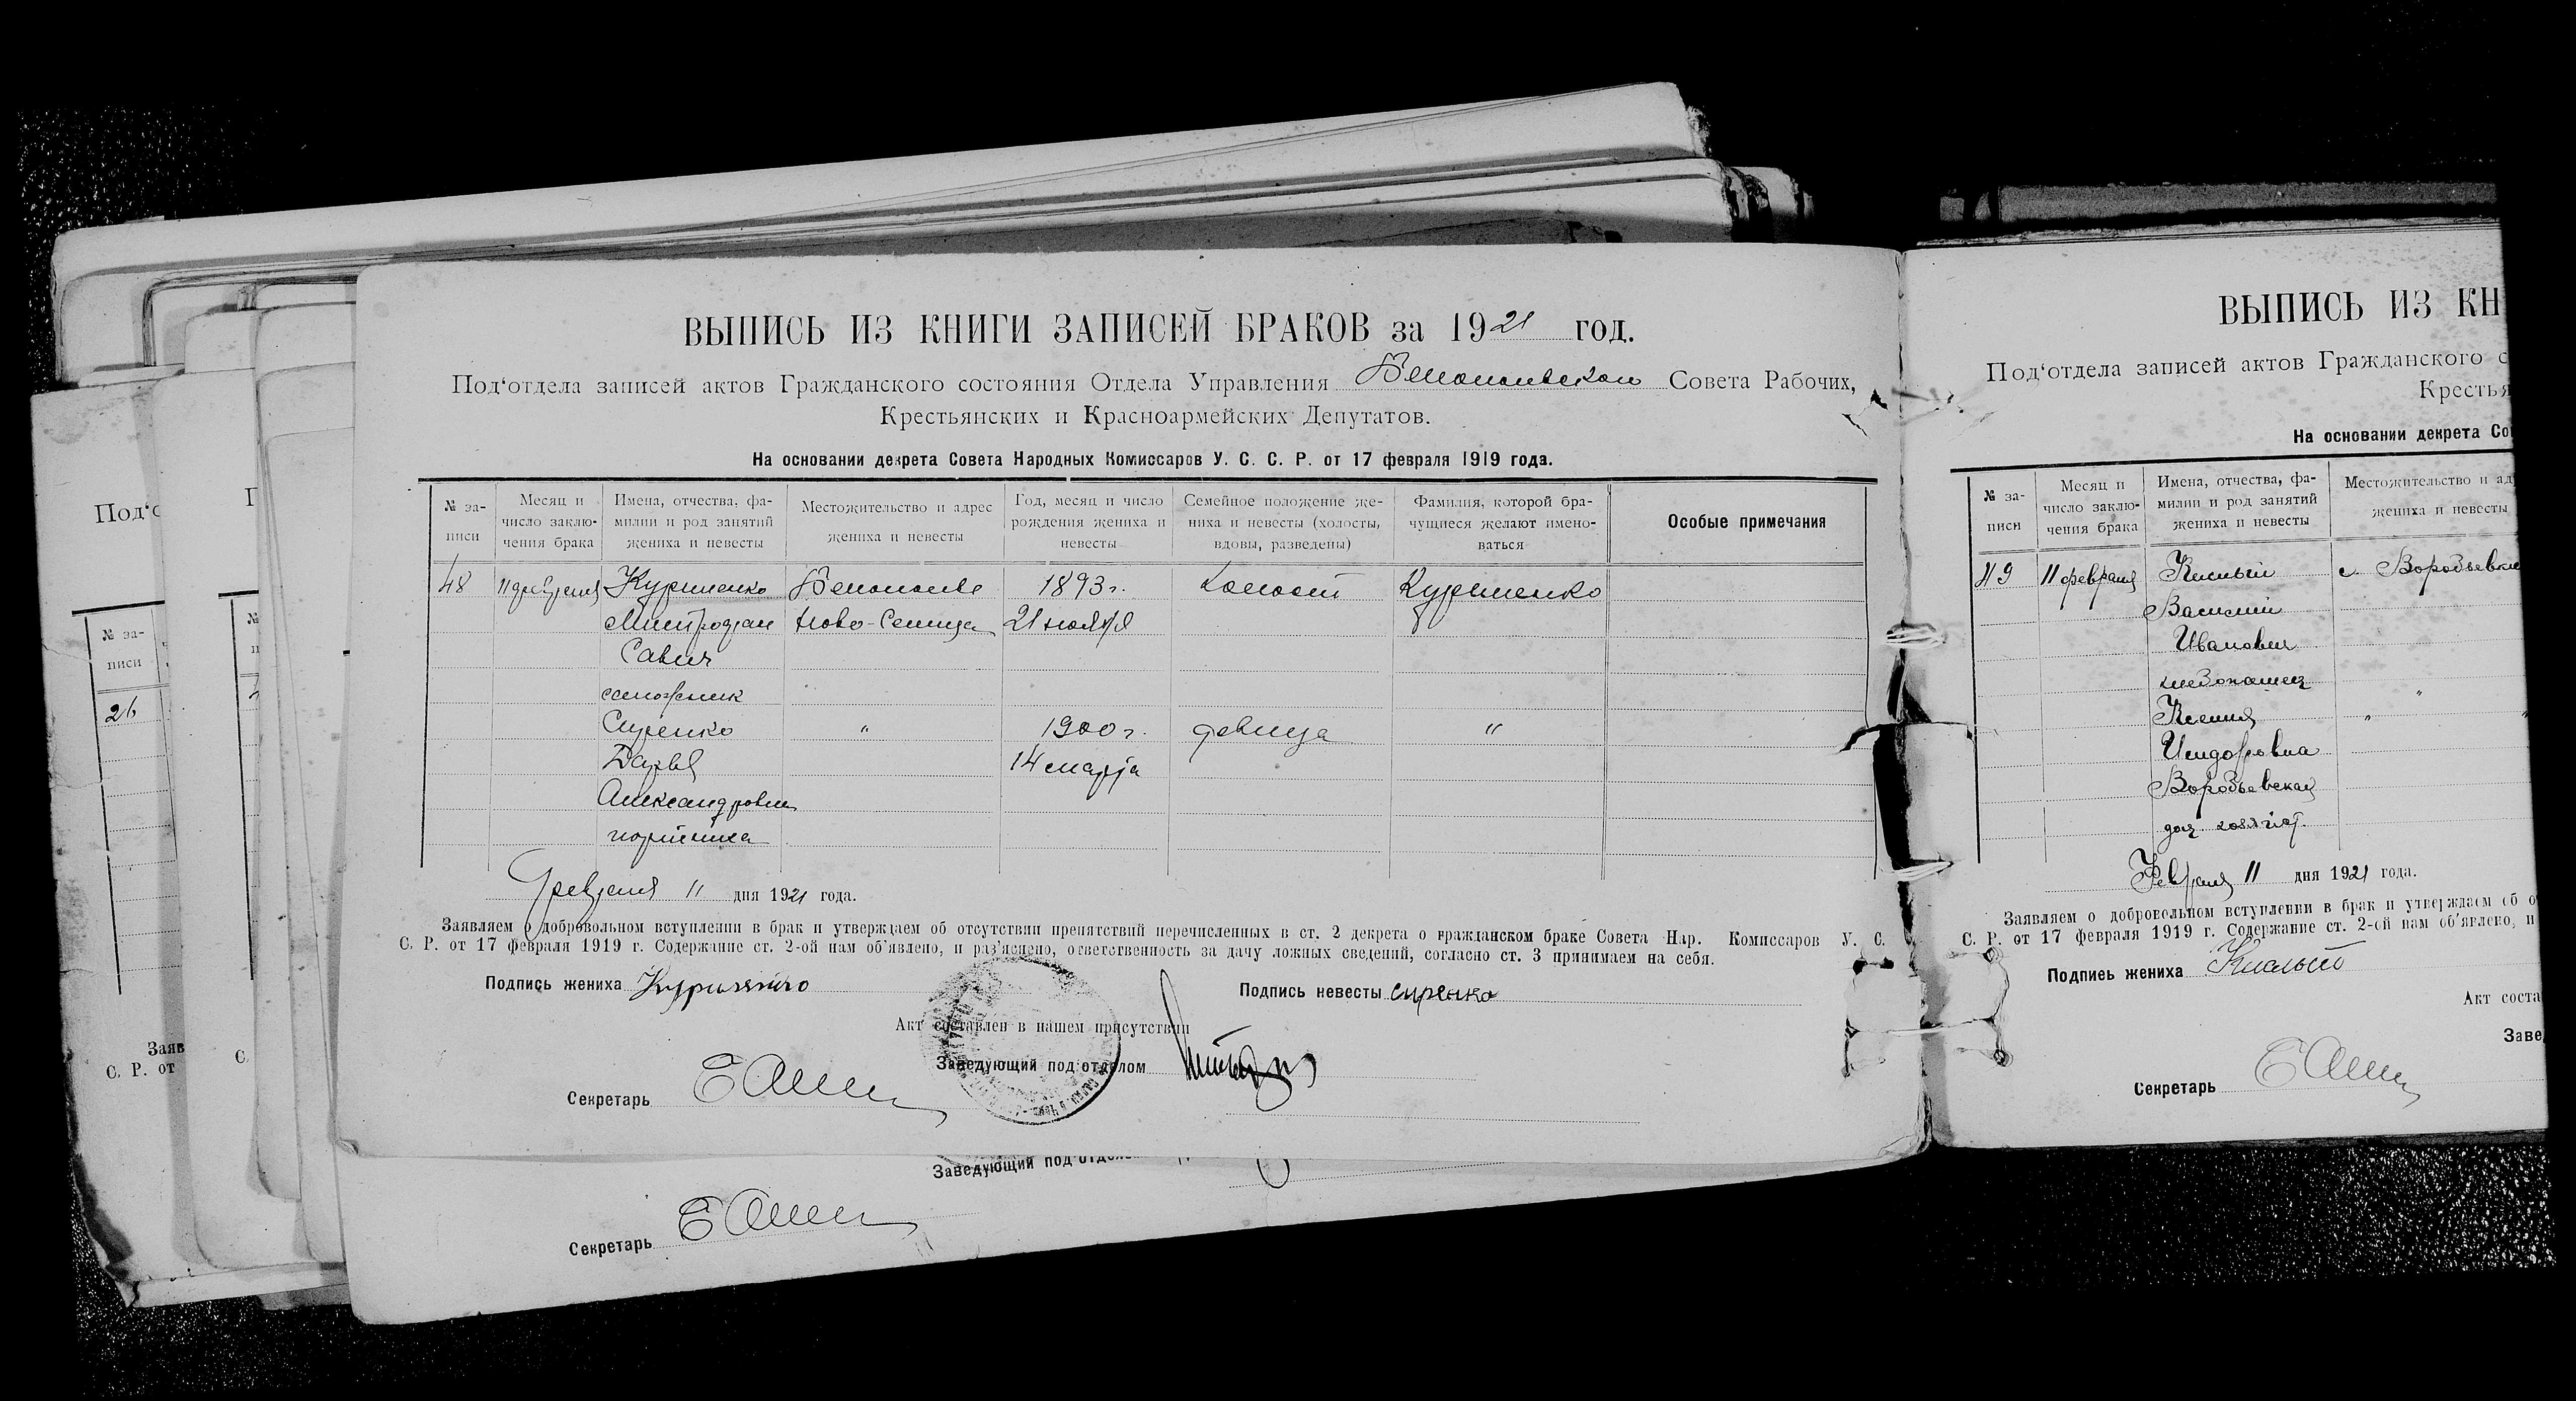 ВЫПИСЬ ИЗ КНИГИ ЗАПИСЕЙ БРАКОВ за 1921 год.
Под‘отдела записей актов Гражданского состояния Отдела Управления Совета Рабочих,
Крестьянских и Красноармейских Депутатов.
На основании декрета Совета Народных Комиссаров У. С. С. Р. от 17 февраля 1919 года.
№ за-
писи
Месяц и
число заклю-
чения брака
Имена, отчества, фа-
милии и род занятий
жениха и невесты
Местожительство и адрес
жениха и невесты
Год, месяц и число
рождения жениха и
невесты
Семейное положение же-
ниха и невесты (холосты,
вдовы, разведены)
Фамилия, которой бра-
чущиеся желают имено-
ваться
Особые примечания
48 11 февраля 1893 г. холост
Митрофан 21
Савич
сапожник
Сиренко " 1900 г. девица "
Дарья 14 марта
Александровна
портниха
Февраля 11 дня 1921 года.
Заявляем о добровольном вступлении в брак и утверждаем об отсутствии препятствий перечисленных в ст. 2 декрета о гражданском браке Совета Нар. Комиссаров У. С.
С. Р. от 17 февраля 1919 г. Содержание ст. 2-ой нам об‘явлено, и раз‘яснено, ответственность за дачу ложных сведений, согласно ст. 3 принимаем на себя.
Подпись жениха
Подпись невесты Сиренко
Акт составлен в нашем присутствии
Заведующий под‘отделом
Секретарь
Заведующий под‘отдел
Секретарь
ВЫПИСЬ ИЗ КН
Под‘отдела записей актов Гражданского с
Крестья
На основании декрета Со
№ за-
писи
Месяц и
число заклю-
чения брака
Имена, отчества, фа-
милии и род занятий
жениха и невесты
Местожительство и ад
жениха и невесты
49 11 февраля с. Воробьевка
Василий
Иванович
хлебопашец
Ксения " "
Исидоровна
Воробьевская
Февраля 11 дня 1921 года.
Заявляем о добровольном вступлении в брак и утверждаем об о
С. Р. от 17 февраля 1919 г. Содержание ст. 2-ой нам об‘явлено, и
Подпись жениха
Акт соста
Заве
Секретарь
Под‘о
№ за-
писи
26
Заяв
С. Р. от